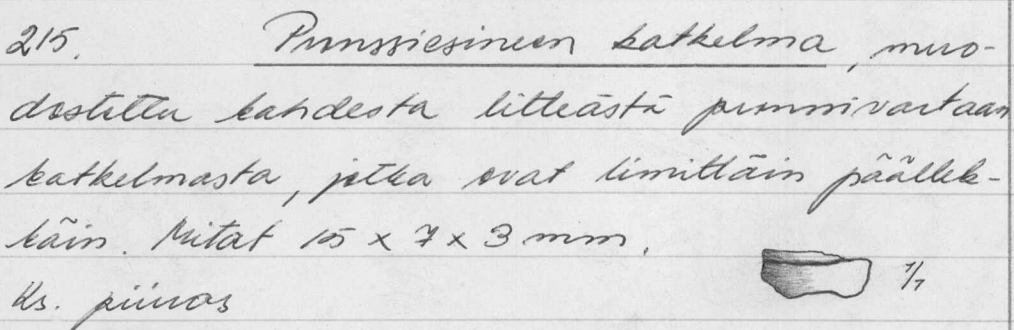 215. Pronssiesineen katkelma, muo-
dostettu kahdesta litteästä pronssivartaan
katkelmasta, jotka ovat limittäin päällek-
käin. Mitat 15 x 7 x 3 mm.
1/1
Ks. piirros